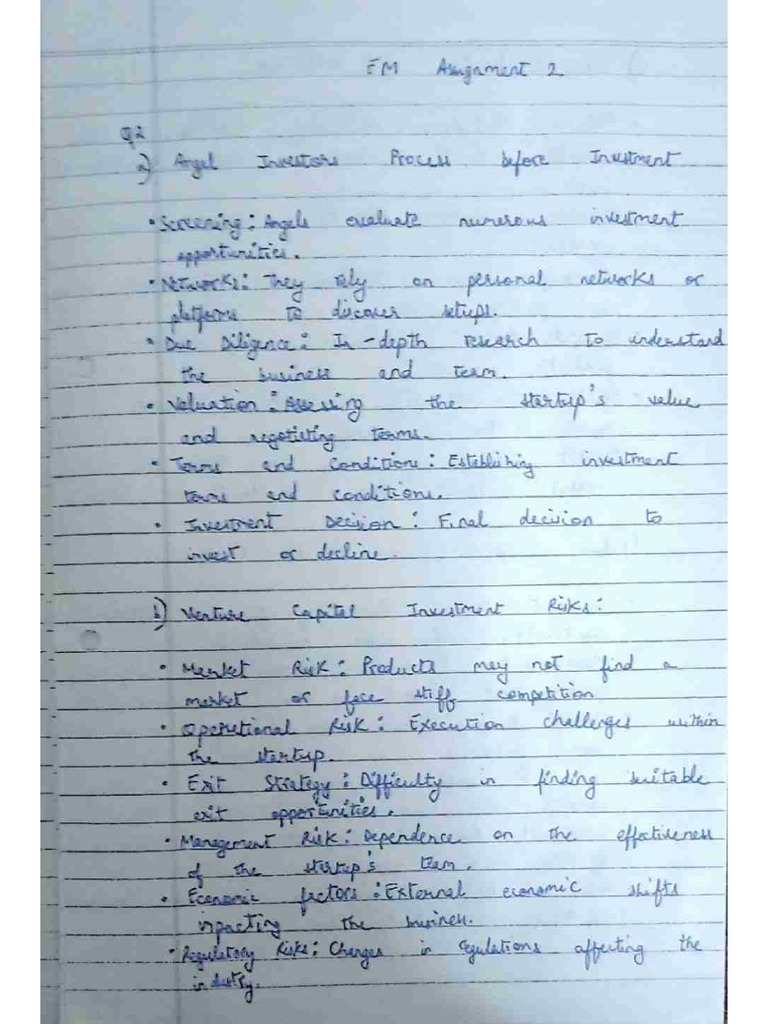 EM Assignment 2
Q2
a) Angel Investors Process before Investment
• Screening: Angels evaluate numerous investment
opportunities.
• Networks: They rely on personal networks or
platforms to discover setups.
• Due Diligence: In-depth research to understand
the business and team.
• Valuation: Assessing the startup's value
and negotisting terms.
• Terms and Conditions: Establishing investment
terms and conditions.
• Investment Decision: Final decision to
invest or decline.
b) Venture Capital Investment Risks:
• Market Risk: Products may not find a
market or face stiff competition
• Operational Risk: Execution challenges within
the startup.
• Exit Strategy: Difficulty in finding suitable
exit opportunities.
• Management Risk: Dependence on the effectiveness
of the startup's team.
• Economic factors: External economic shifts
inpacting the business.
• Regulatory Risks: Changes in regulations affecting the
industry.